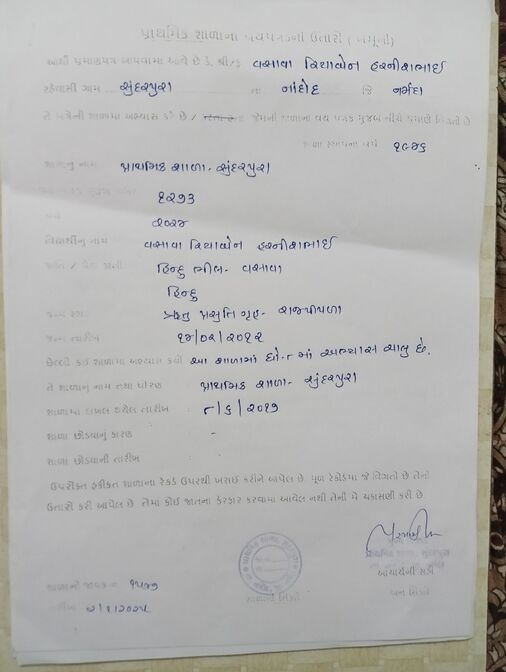 પ્રાથમિક શાળાના વયપત્રકનો ઉતારો (નમૂનો)
આથી પ્રમાણપત્ર આપવામાં આવે છે કે, શ્રી/કુ વસાવા રિયાબેન હરનીશભાઈ
રહેવાસી ગામ સુંદરપુરા તા નાંદોદ જિ નર્મદા
તે અત્રેની શાળામાં અભ્યાસ કરે છે / જેમની શાળાના વય પત્રક મુજબ નીચે પ્રમાણે વિગતો છે
શાળા સ્થાપના વર્ષ ૧૯૪૬
શાળાનું નામ પ્રાથમિક શાળા- સુંદરપુરા
૧૨૭૩
વિદ્યાર્થીનું નામ વસાવા રિયાબેન હરનીશભાઈ
જાતિ / પેટા જાતિ હિન્દુ ભીલ- વસાવા
હિન્દુ
જન્મ સ્થળ પ્રસુતિ ગૃહ- રાજપીપળા
જન્મ તારીખ ૧૪/૦૨/૨૦૧૨
છેલ્લે કઈ શાળામાં અભ્યાસ કર્યો આ શાળામાં ધો-૮ માં અભ્યાસ ચાલુ છે.
તે શાળાનું નામ તથા ધોરણ પ્રાથમિક શાળા- સુંદરપુરા
શાળામાં દાખલ થયેલ તારીખ ૮/૬/૨૦૧૭
શાળા છોડવાનું કારણ -
શાળા છોડવાની તારીખ -
ઉપરોક્ત હકીકત શાળાના રેકર્ડ ઉપરથી ખરાઈ કરીને આપેલ છે. મૂળ રેકોર્ડમાં જે વિગતો છે તેનો
ઉતારો કરી આપેલ છે તેમાં કોઈ જાતના ફેરફાર કરવામાં આવેલ નથી તેની મે ચકાસણી કરી છે
પ્રાથમિક શાળા, સુંદરપુરા
આચાર્યની સહી
શાળાનો જાવક =
શાળાનો સિક્કો